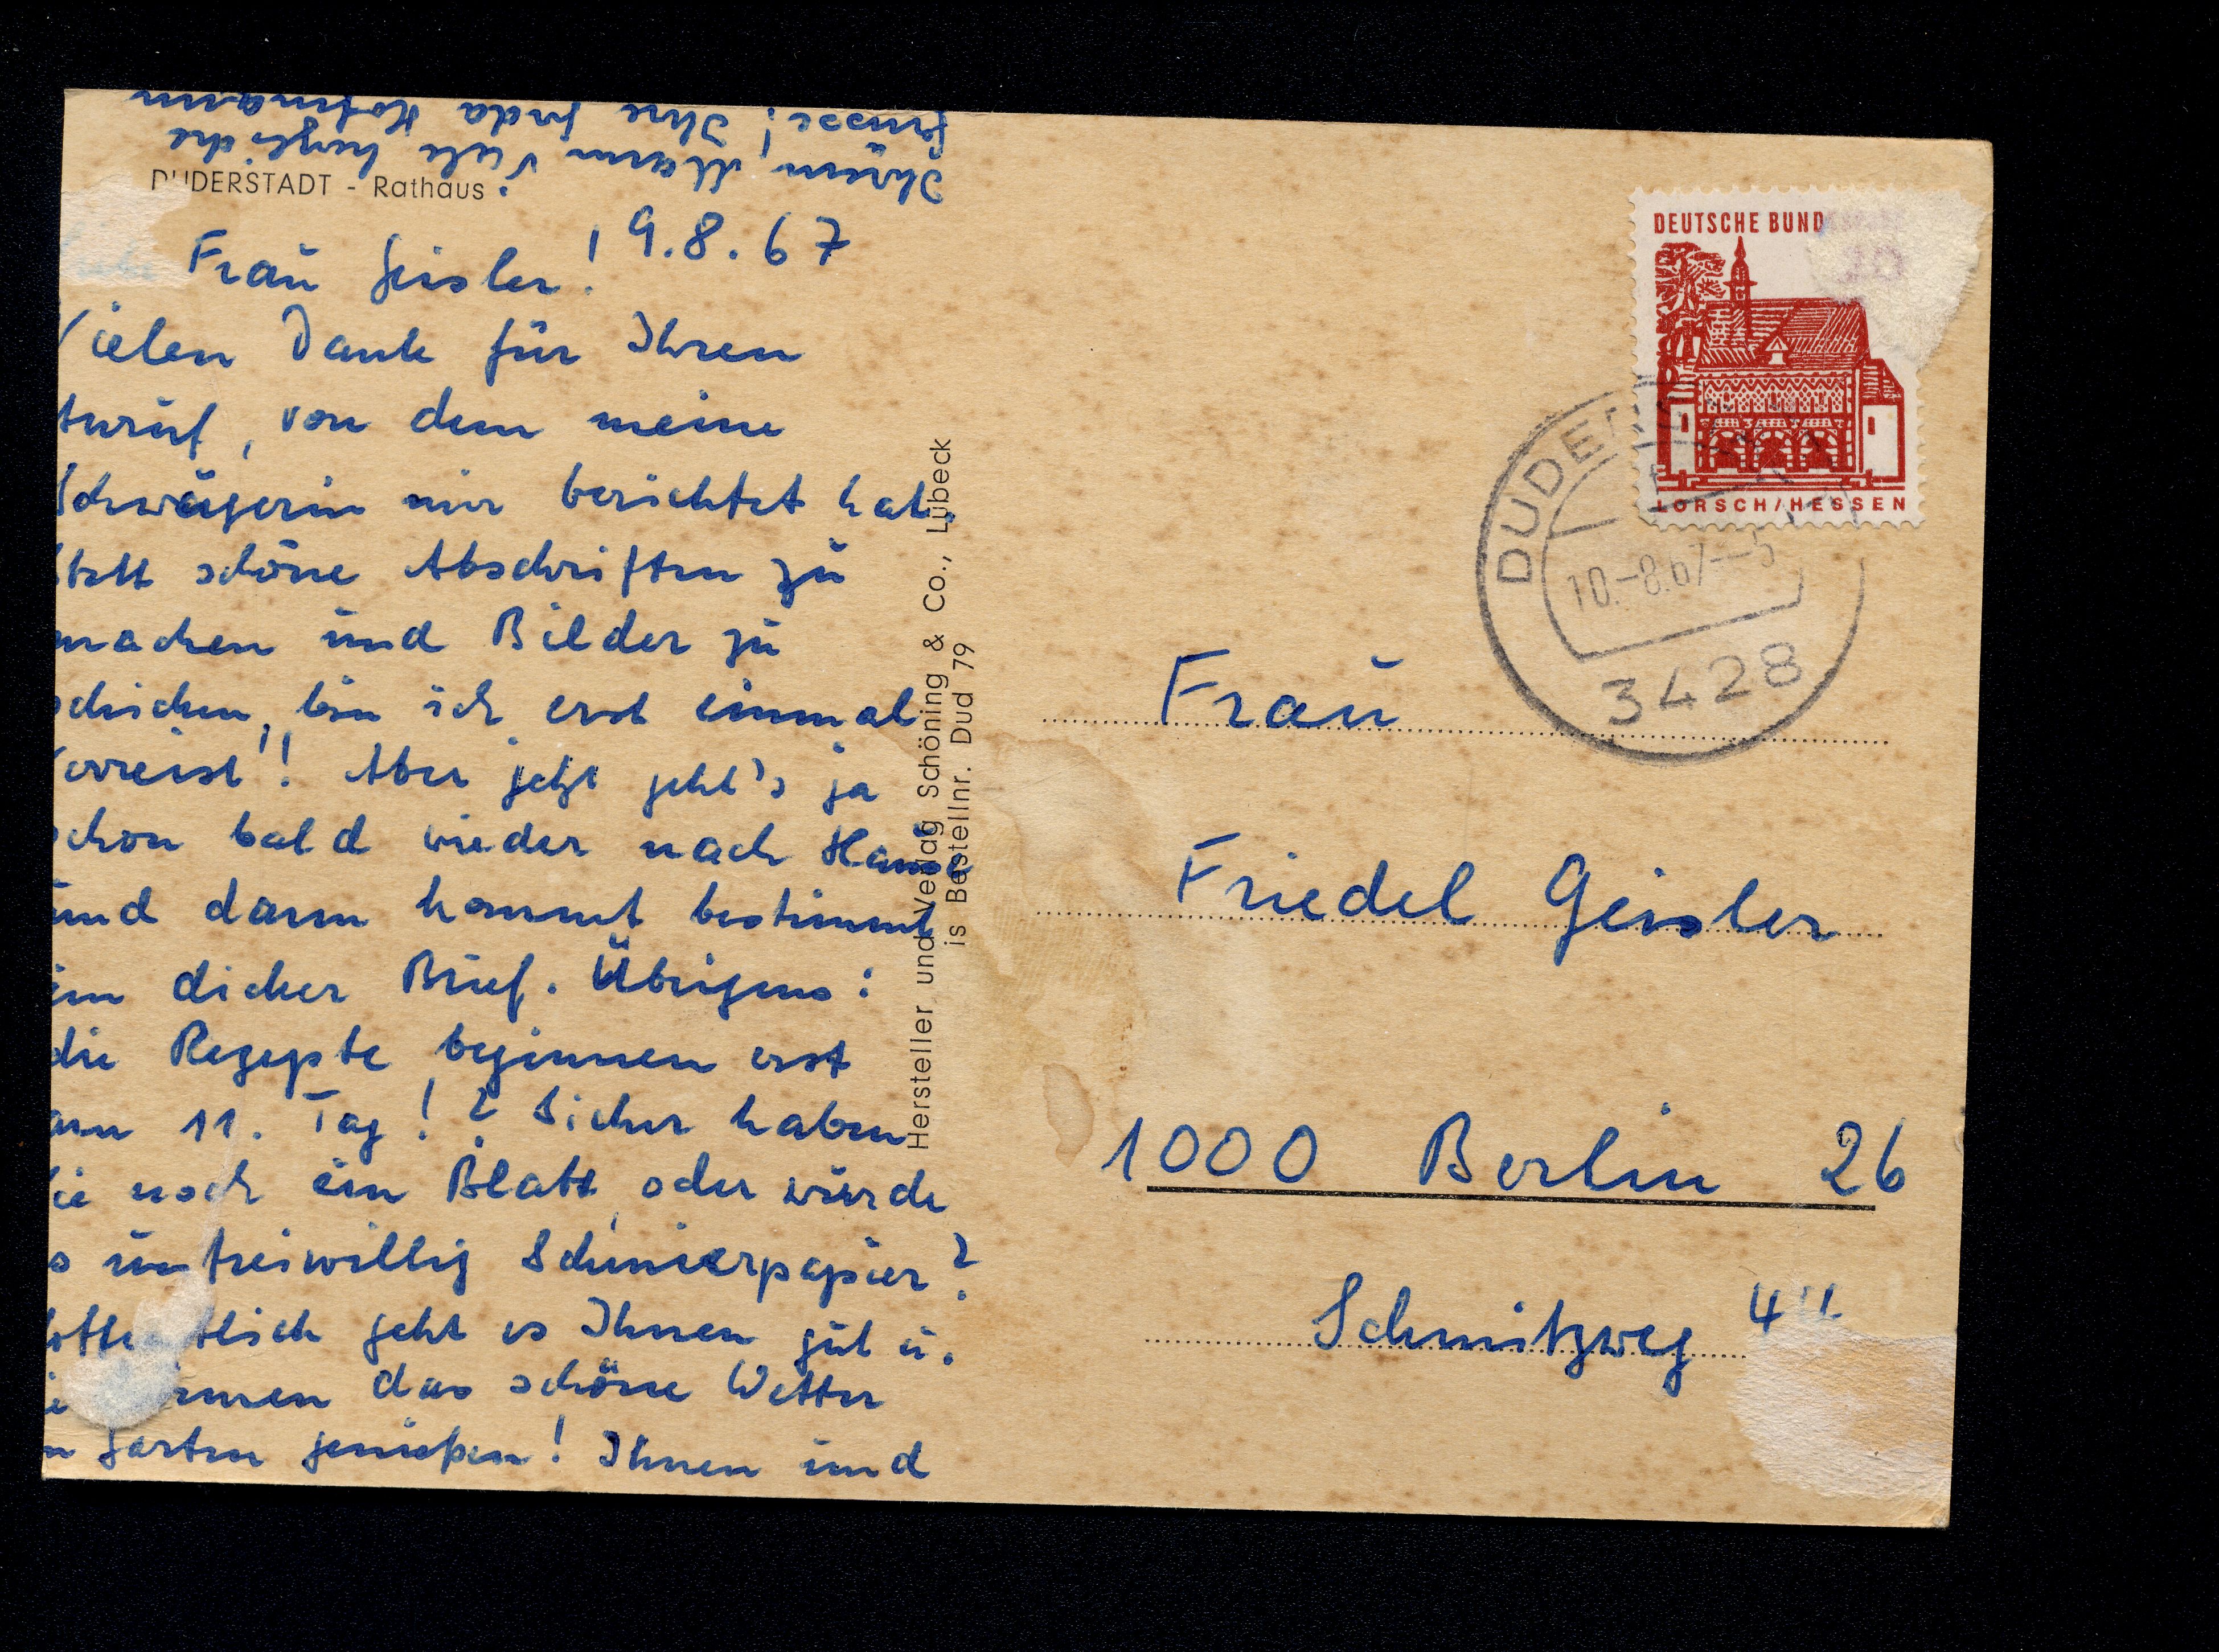 DUDERSTADT - Rathaus
9.8.67
Frau Geisler!
Vielen Dank für Ihren
, von dem meine
Schwägerin mir berichtet hat.
Statt schöne Abschriften zu
machen und Bilder zu
schicken, bin ich erst einmal
verreist!! Aber jetzt geht's ja
schon bald wieder nach Hause
und dann kommt bestimmt
ein dicker Brief. Übrigens:
die Rezepte beginnen erst
am 11. Tag!? Sicher haben
Sie noch ein Blatt, oder würde
es unfreiwillig Schmierpapier?
geht es Ihnen gut u.
das schöne Wetter
Garten genießen! Ihnen und
Ihrem Mann viele herzliche
Grüsse! Ihre Hofmann
Hersteller und Verlag Schöning & Co., Lübeck
is Bestellnr. Dud 79
DEUTSCHE BUND
LORSCH/HESSEN
10.-8.67--5
3428
Frau
Friedel Geisler
1000 Berlin 26
Schmitzweg